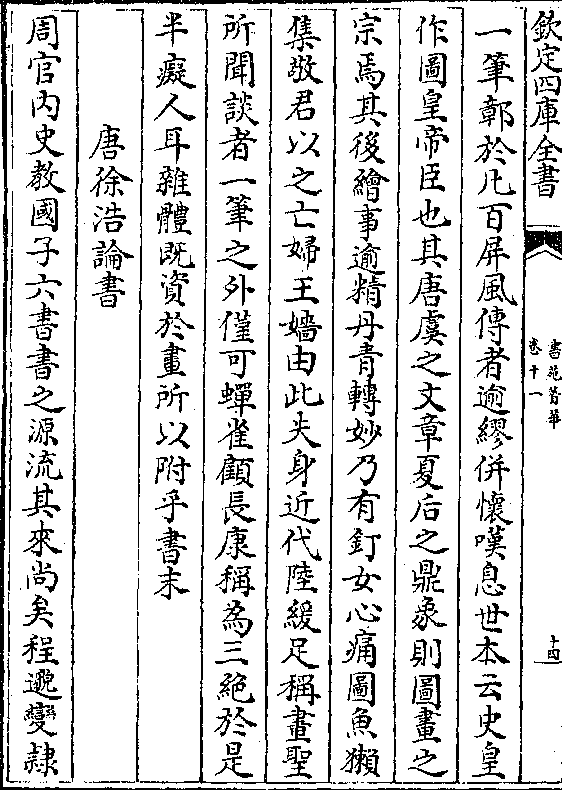 欽定四庫全書
書苑菁華
卷十一
十四
一筆鄣於凢百屏風傳者逾繆併懷嘆息世本云史皇
作圖皇帝臣也其唐虞之文章夏后之鼎象則圖畫之
宗焉其後繪事逾精丹青轉妙乃有釘女心痛圖魚獺
集敬君以之亡婦王嬙由此失身近代陸緩足稱畫聖
所聞談者一筆之外僅可蟬雀顧長康稱為三絶於是
半癡人耳雜體既資於畫所以附乎書末
唐徐浩論書
周官内史教國子六書書之源流其來尚矣程邈變隸